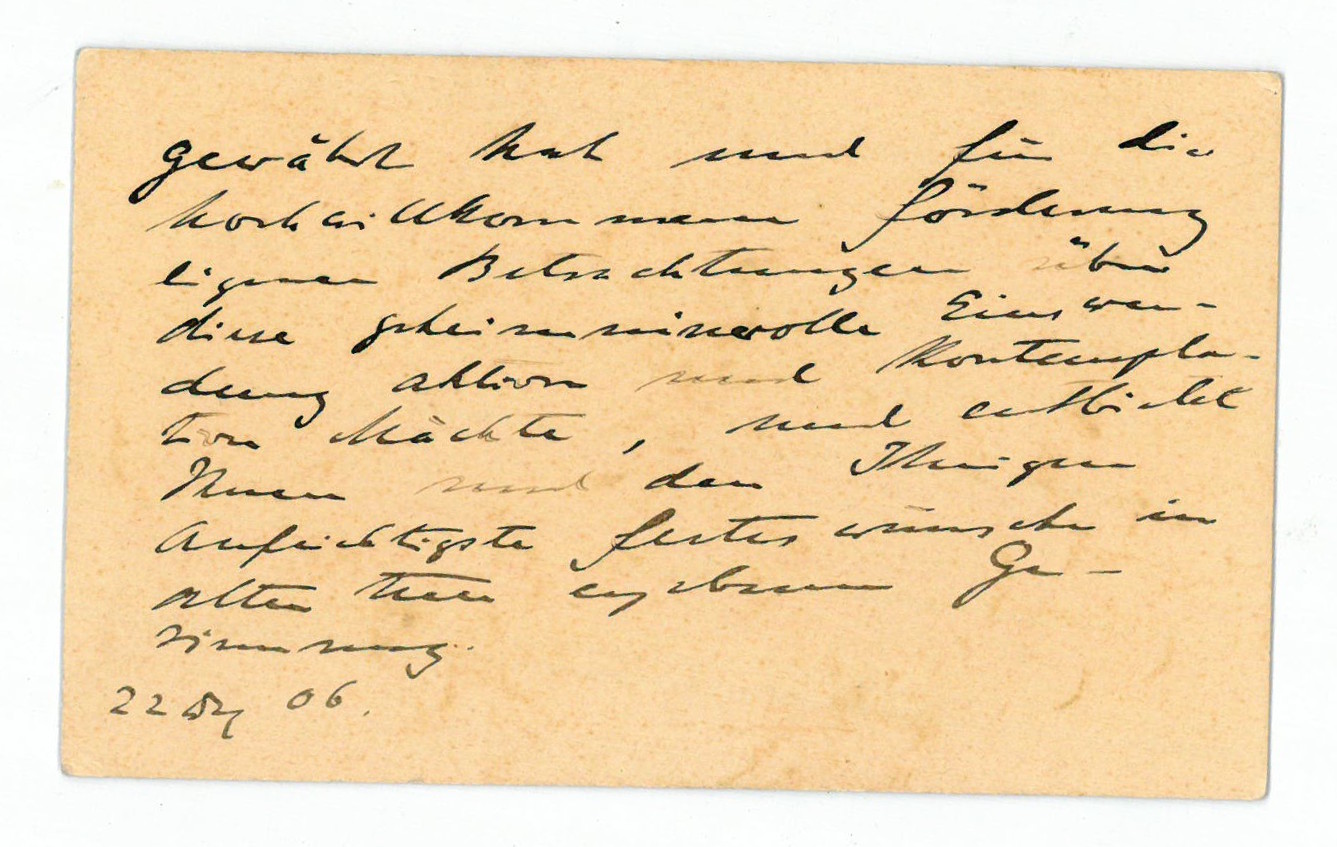 gewährt hat und für die
hochwillkommene Förderung
eigener Betrachtungen über
diese geheimnisvolle Einwen-
dung aktiver und kontempla-
tiver Mächte, und entbietet
Ihnen und den Ihrigen
aufrichtigste Festeswünsche in
alter treu ergebener Ge-
sinnung.
22 Dz 06.